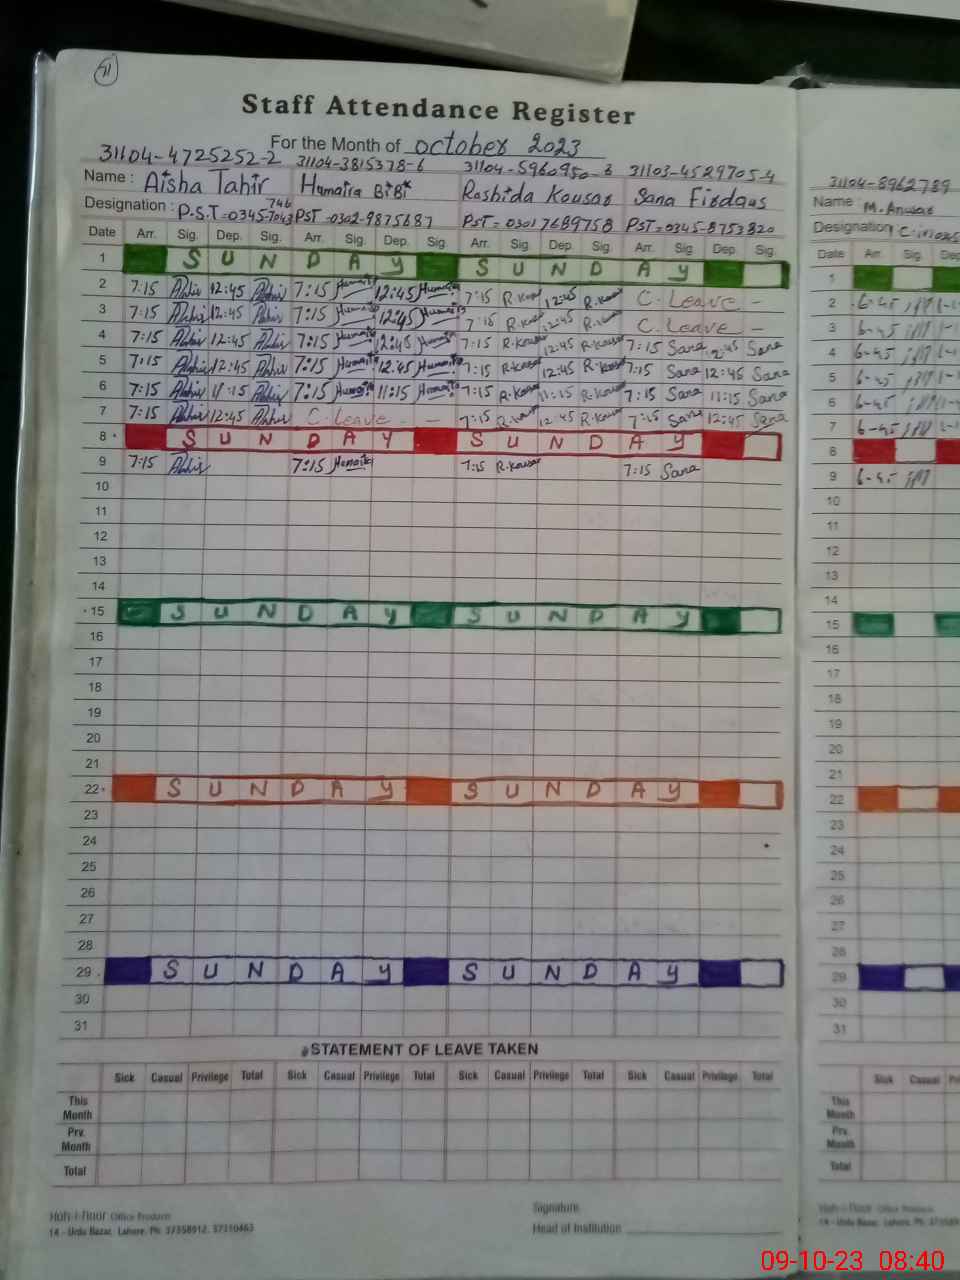 71
Staff Attendance Register
For the Month of October 2023
31104-4725252-2 31104-3815378-6 31104-5960950-6 31103-4529705-4
Name : Aisha Tahir Humaira BiBi Rashida Kousar Sana Firdaus
746
Designation : P.S.T-0345-7043 PST-0302-9875887 PST=03017689758 PST=0345-8753820
Date Arr. Sig. Dep. Sig. Arr. Sig. Dep. Sig. Arr. Sig. Dep. Sig. Arr. Sig Dep. Sig.
1 SUNDAY SUNDAY
2 7:15 12:45 7:15 Humaira 12:45 Humaira 7:15 R.Kousar 12:45 R.Kousar C.Leave -
3 7:15 12:45 7:15 12:45 7:15 R.Kousar 12:45 R.Kousar C.Leave -
4 7:15 12:45 7:15 Humaira 12:45 Humaira 7:15 R.Kousar 12:45 R.Kousar 7:15 Sana 12:45 Sana
5 7:15 12:45 7:15 Humaira 12:45 Humaira 7:15 R.Kousar 12:45 R.Kousar 7:15 Sana 12:45 Sana
6 7:15 11:15 7:15 Humaira 11:15 Humaira 7:15 R.Kousar 11:15 R.Kousar 7:15 Sana 11:15 Sana
7 7:15 12:45 C.Leave - - 7:15 R.Kousar 12:45 R.Kousar 7:15 Sana 12:45 Sana
8 SUNDAY SUNDAY
9 7:15 7:15 Humaira 7:15 R.Kousar 7:15 Sana
10
11
12
13
14
15 SUNDAY SUNDAY
16
17
18
19
20
21
22 SUNDAY SUNDAY
23
24
25
26
27
28
29 SUNDAY SUNDAY
30
31
STATEMENT OF LEAVE TAKEN
Sick Casual Privilege Total Sick Casual Privilege Total Sick Casual Privilege Total Sick Casual Privilege Total
This Month
Prv. Month
Total
Signature
Head of Institution
Office Products
14 - Urdu Bazar, Lahore. Ph: 37358912, 37310463
31104-8962789
Name : M. Anwar
Designation
Date Arr. Sig. Dep.
1
2 6-45
3 6-45
4 6-45
5 6-45
6 6-45
7 6-45
8
9 6-45
10
11
12
13
14
15
16
17
18
19
20
21
22
23
24
25
26
27
28
29
30
31
Sick Casual
This Month
Prv. Month
Total
09-10-23 08:40